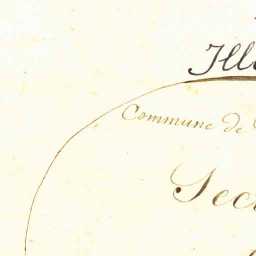 Ill
Commune de
Sec